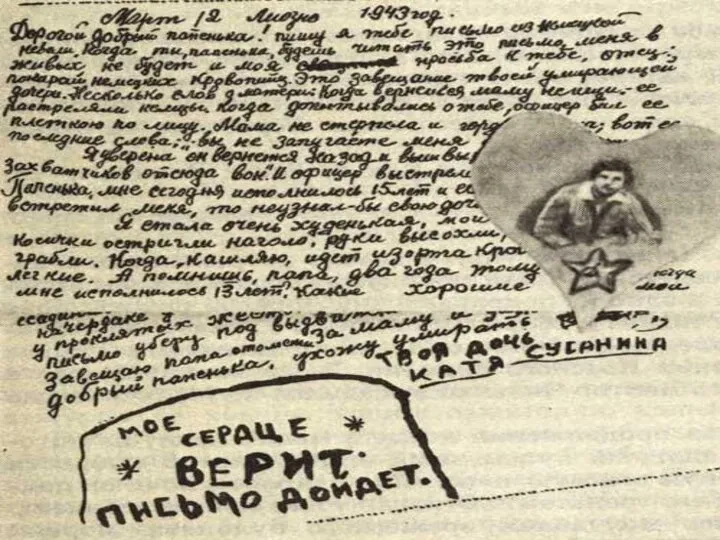 Март 12 Лиозно 1943 год.
Дорогой добрый папенька! пишу я тебе письмо из немецкой
неволи. Когда ты, папенька, будешь читать это письмо, меня в
живых не будет и моя просьба к тебе, отец:
покарай немецких кровопийц. Это завещание твоей умирающей
дочери. Несколько слов о матери: когда вернешся маму не ищи. ее
растреляли немцы. Когда допытывались о тебе, офицер бил ее
плеткою по лицу. Мама не стерпела и горд а; вот ее
последние слова: „вы не запугаете меня
Я уверена он вернется назад и вышвы
захватчиков отсюда вон". И офицер выстрел
Папенька, мне сегодня исполнилось 15 лет и ес
встретил меня, то неузнал-бы свою доч
Я стала очень худенькая, мои
косички остригли наголо, руки высохли,
грабли. Когда кашляю, идет из орта кро
легкие. А помнишь, папа, два года тому когда
мне исполнилось 13 лет? Какие хорошие мои
на чердаке
у проклятых жест
письмо уберу под выд
Завещаю папа отомсти за маму и
добрый папенька, ухожу умирать
ТВОЯ ДОЧЬ
КАТЯ СУСАНИНА
МОЕ
СЕРДЦЕ
ВЕРИТ.
ПИСЬМО ДОЙДЕТ.